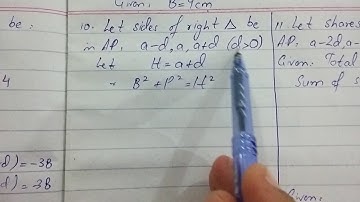 Given: B = 4cm
be :
10. Let sides of right Δ be
in AP: a-d, a, a+d (d>0)
Let H = a+d
∴ B² + P² = H²
4
d) = -38
d) = 38
11. Let shares
AP: a-2d, a-
Given: Total
Sum of s